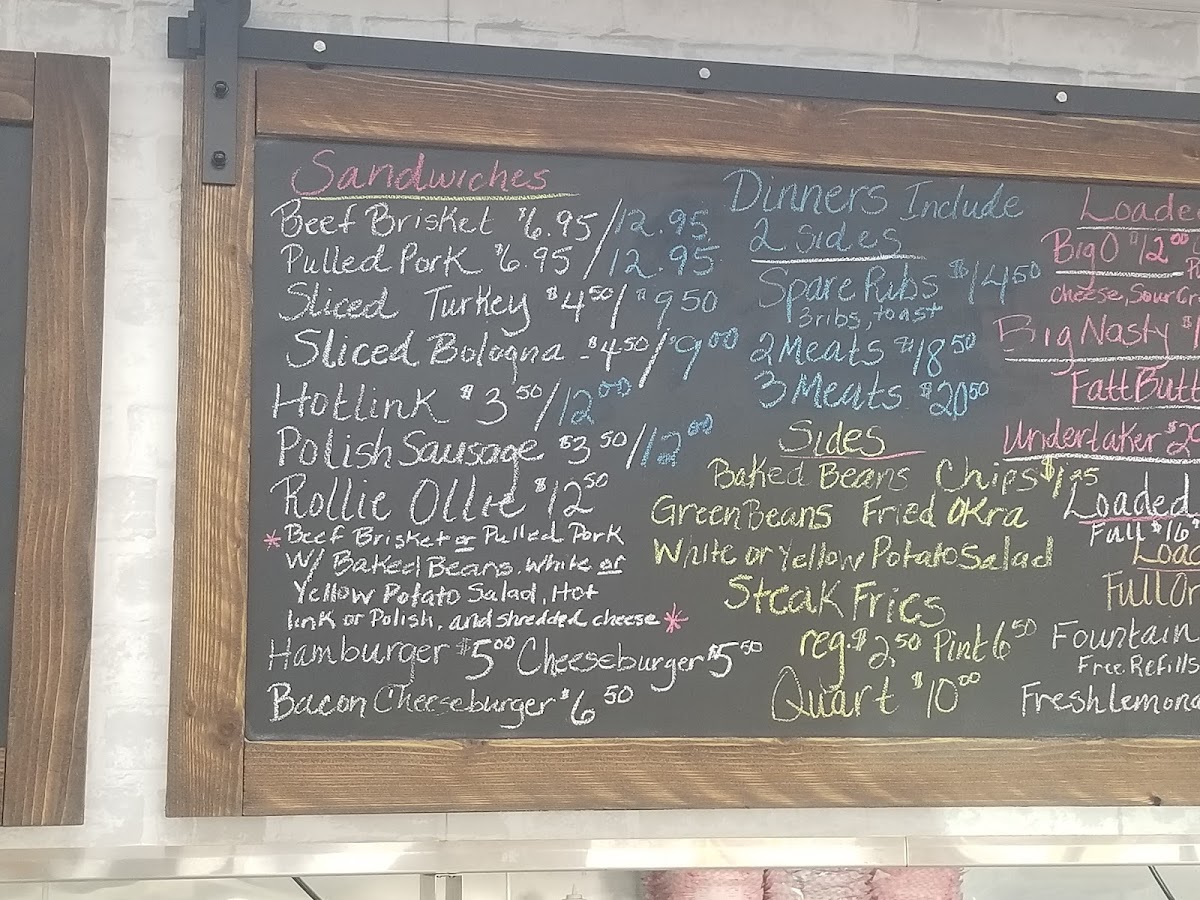 Sandwiches
Beef Brisket $6.95/12.95
Pulled Pork $6.95/12.95
Sliced Turkey $4.50/$9.50
Sliced Bologna - $4.50/$9.00
Hotlink $3.50/12.00
Polish Sausage $3.50/12.00
Rollie Ollie $12.50
*Beef Brisket or Pulled Pork
w/ Baked Beans, White or
Yellow Potato Salad, Hot
link or Polish, and shredded cheese*
Hamburger $5.00 Cheeseburger $5.50
Bacon Cheeseburger $6.50
Dinners Include
2 sides
Spare Ribs $14.50
3 ribs, toast
2 Meats $18.50
3 Meats $20.50
Sides
Baked Beans Chips $1.25
Green Beans Fried Okra
White or Yellow Potato Salad
Steak Fries
reg. $2.50 Pint 6.50
Quart $10.00
Loade
Big O $12.00
cheese, Sour Cr
Big Nasty $1
Fatt Butt
Undertaker $2
Loaded
Full $16
Loa
Full Or
Fountain
Free Refills
Fresh Lemona